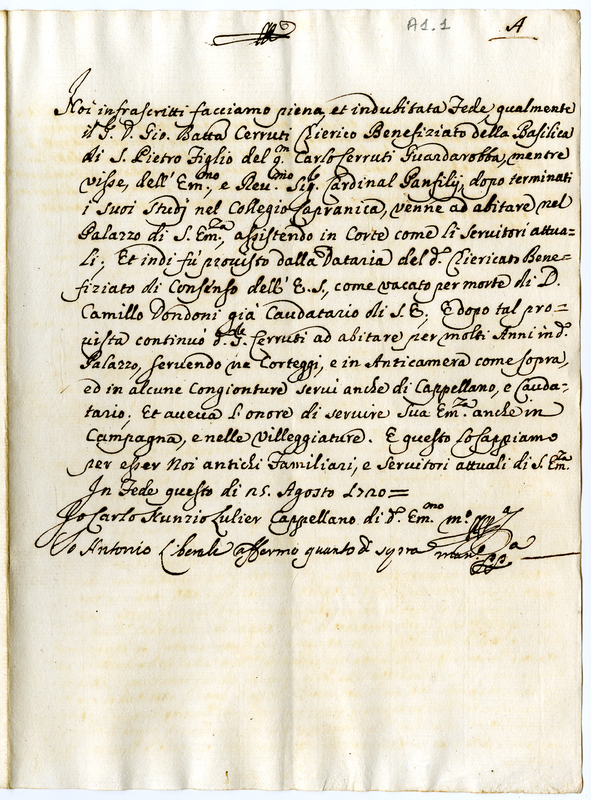 A1.1
A
Noi infrascritti facciamo piena, et indubitata Fede qualmente
il S. D. Gio. Batta Cerruti Chierico Benefiziato della Basilica
di S. Pietro Figlio del q.m Carlo Cerruti Guardarobba, mentre
visse, dell' Em.mo, e Rev.mo Sig.r Cardinal Panfilij, dopo terminati
i suoi Studj nel Collegio Capranica, venne ad abitare nel
Palazzo di S. Em.za, assistendo in Corte come li Servitori attua=
li; Et indi fù provisto dalla Dataria del d.o Chiericato Bene=
fiziato di Consenso dell' E. S., come vacato per morte di D.
Camillo Dondoni già Caudatario di S. E.; E dopo tal pro=
vista continuò d. S. Cerruti ad abitare per molti Anni in d.o
Palazzo, servendo ne Corteggi, e in Anticamera come sopra,
ed in alcune Congionture servì anche di Cappellano, e Cauda=
tario; Et aveva l'onore di servire Sua Em.za anche in
Campagna, e nelle Villeggiature. E questo lo sappiamo
per esser Noi antichi Familiari, e Servitori attuali di S. Em.za
In Fede questo dì 25. Agosto 1720=
Io Carlo Nunzio Lulier Cappellano di d.o Em.mo m.o pp.a
Io Antonio Liberali affermo quanto di sopra mano pp.a